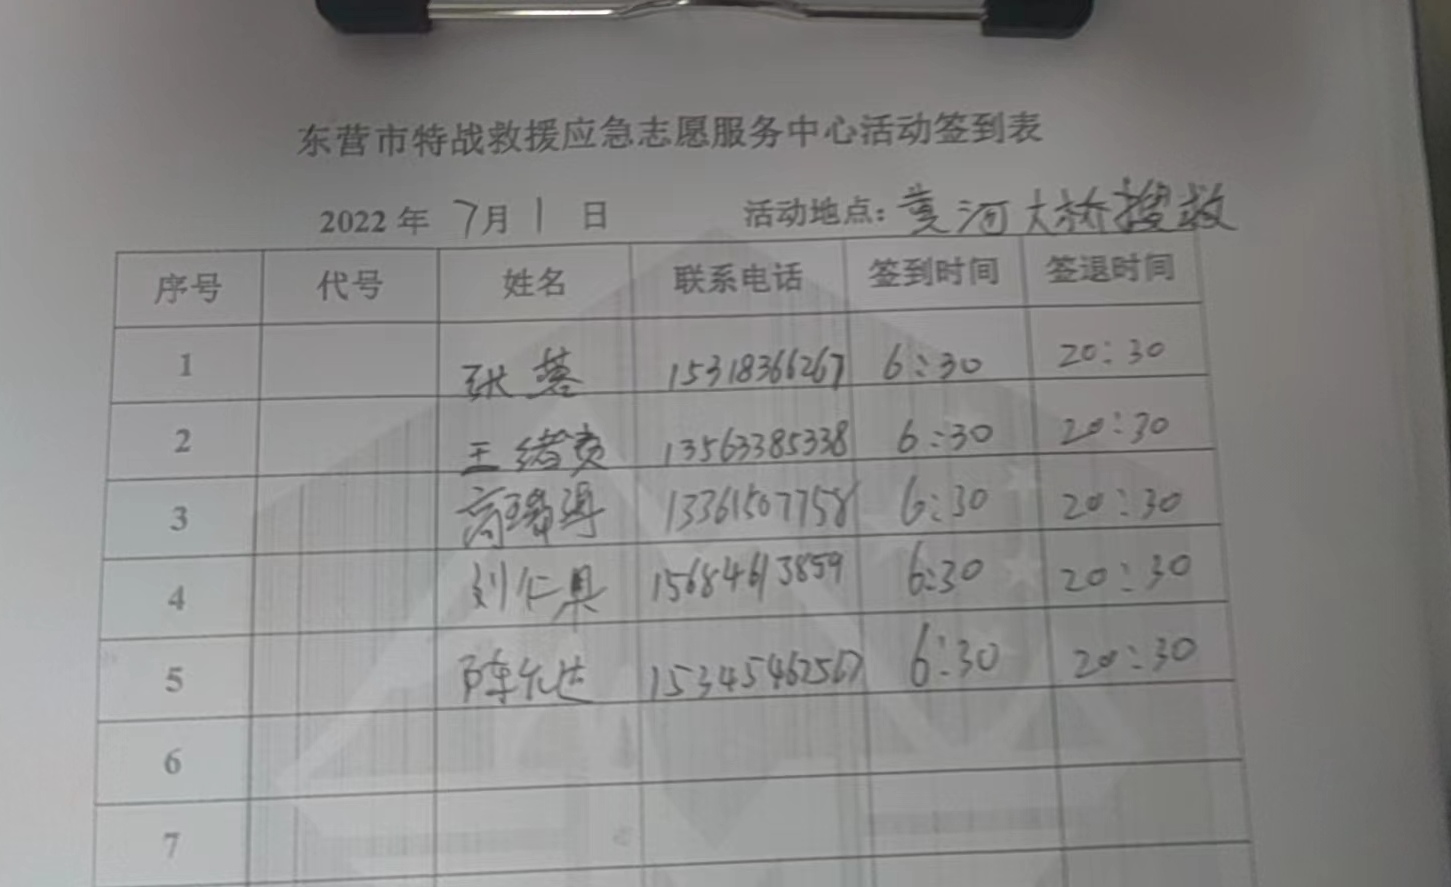 东营市特战救援应急志愿服务中心活动签到表
2022年 7月 1 日 活动地点: 黄河大桥搜救
序号 代号 姓名 联系电话 签到时间 签退时间
1 张蓉 15318366267 6:30 20:30
2 王绪 13563385338 6:30 20:30
3 高 13361507758 6:30 20:30
4 刘仁 15684613859 6:30 20:30
5 陈允达 15345462567 6:30 20:30
6
7